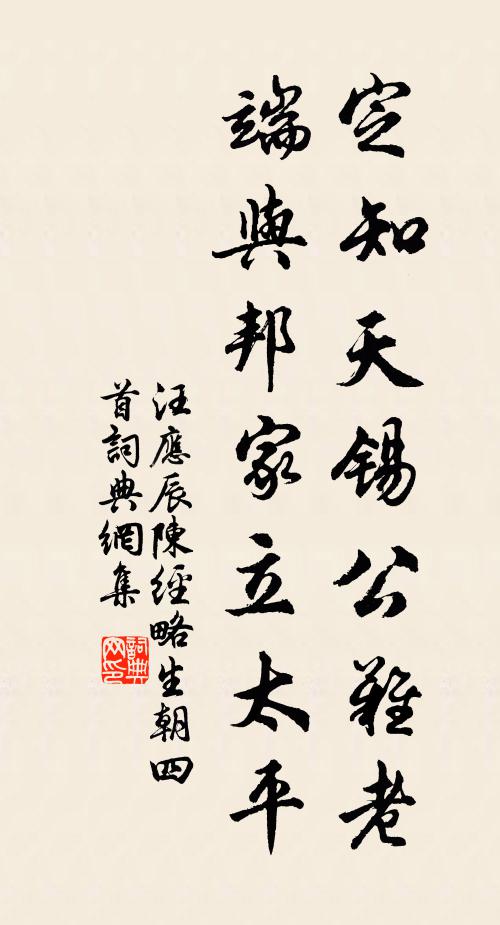 定知天錫公難老
端與邦家立太平
汪應辰陳經略生朝四
首詞典網集
詞典網印